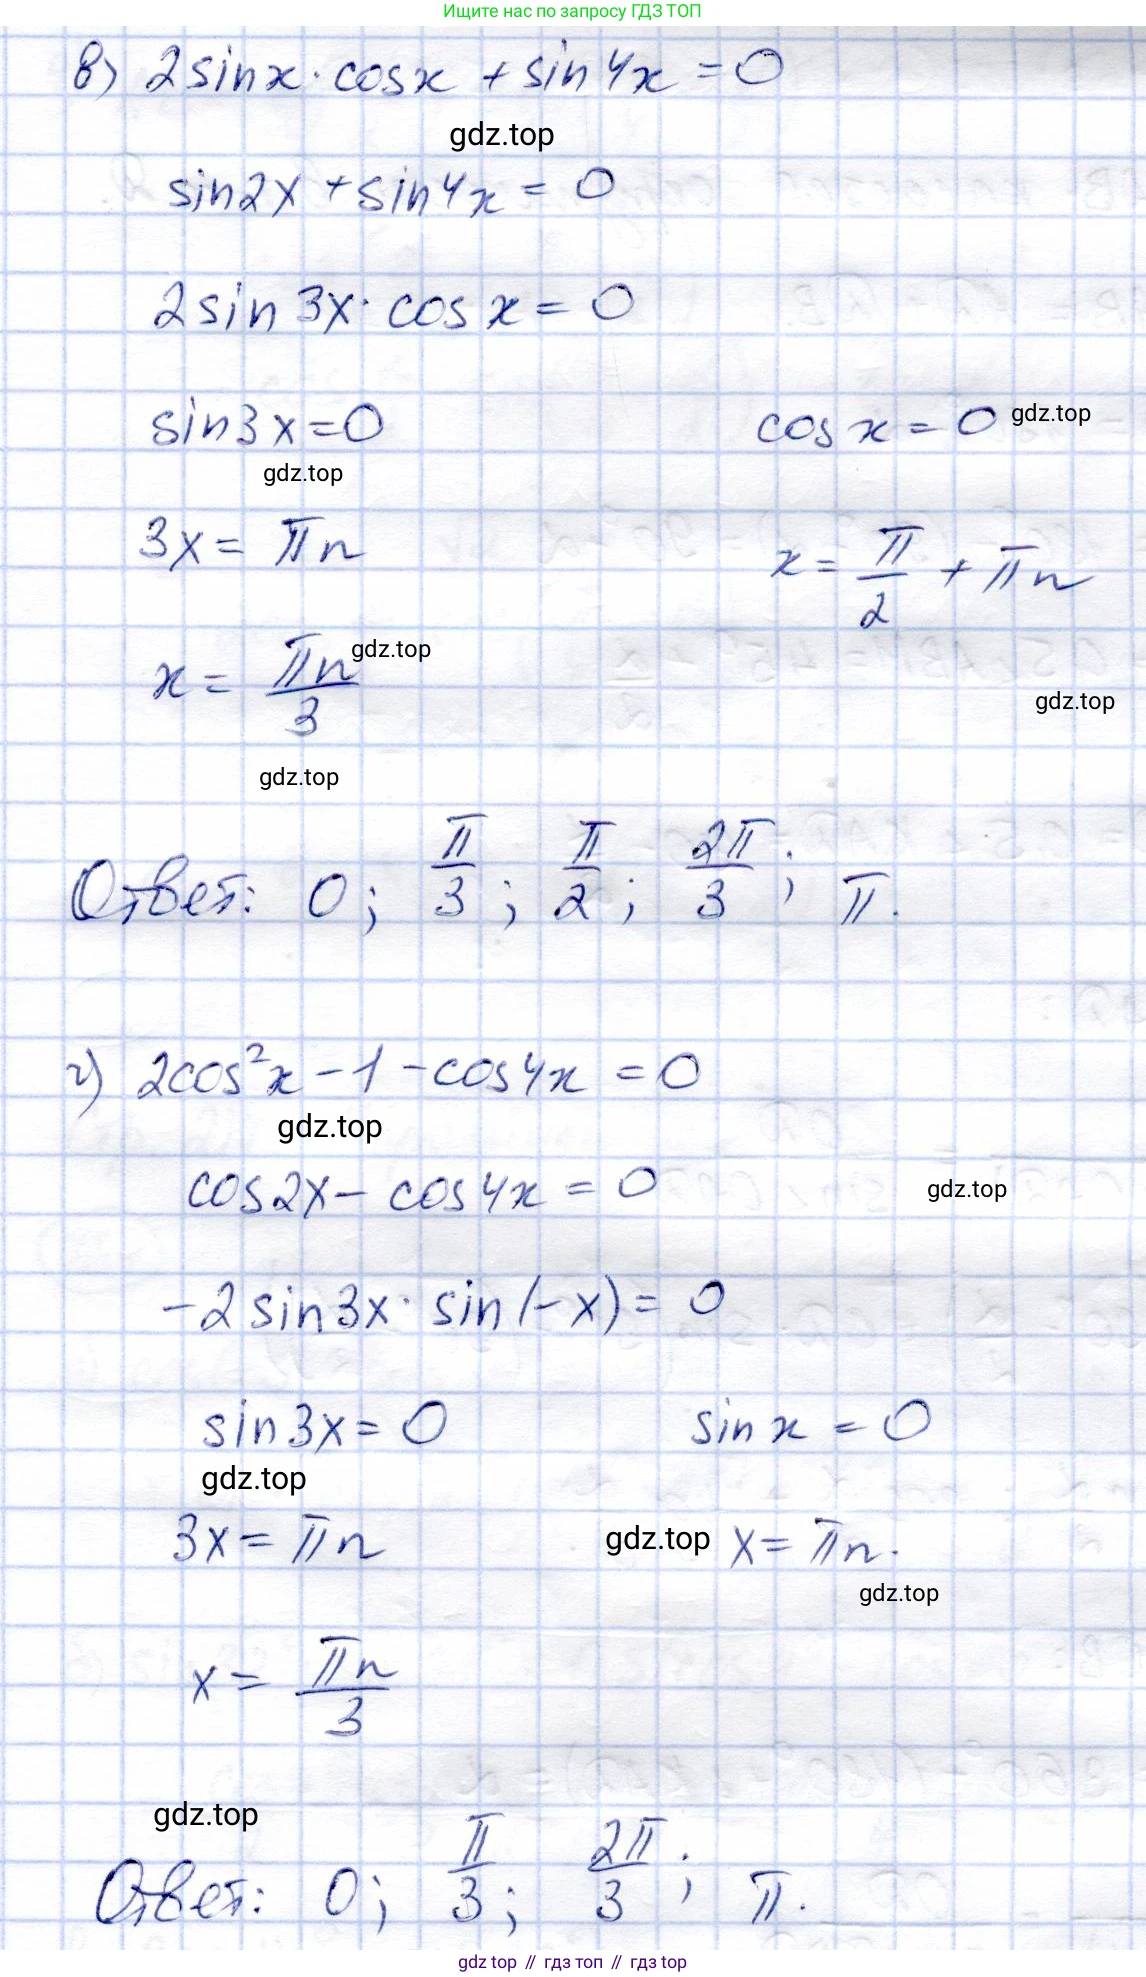 Ищите нас по запросу ГДЗ ТОП
в) 2sinx · cosx + sin4x = 0
gdz.top
sin2x + sin4x = 0
2sin3x · cosx = 0
sin3x = 0 cosx = 0 gdz.top
gdz.top
3x = πn x = π/2 + πn
x = πn/3 gdz.top
gdz.top
gdz.top
Ответ: 0; π/3; π/2; 2π/3; π.
г) 2cos²x - 1 - cos4x = 0
gdz.top
cos2x - cos4x = 0 gdz.top
-2sin3x · sin(-x) = 0
sin3x = 0 sinx = 0
gdz.top
3x = πn gdz.top x = πn.
gdz.top
x = πn/3
gdz.top
Ответ: 0; π/3; 2π/3; π.
gdz top // гдз топ // гдз top